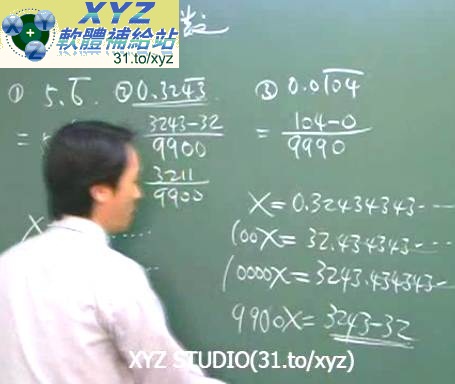 XYZ
軟體補給站
31.to/xyz
數
① 5.6̅ ② 0.324̅3̅ ③ 0.01̅0̅4̅
= 3243-32 = 104-0
9900 9990
3211
9900
X = 0.32434343-----
100X = 32.434343-----
10000X = 3243.434343---
9900X = 3243-32
X
XYZ STUDIO(31.to/xyz)